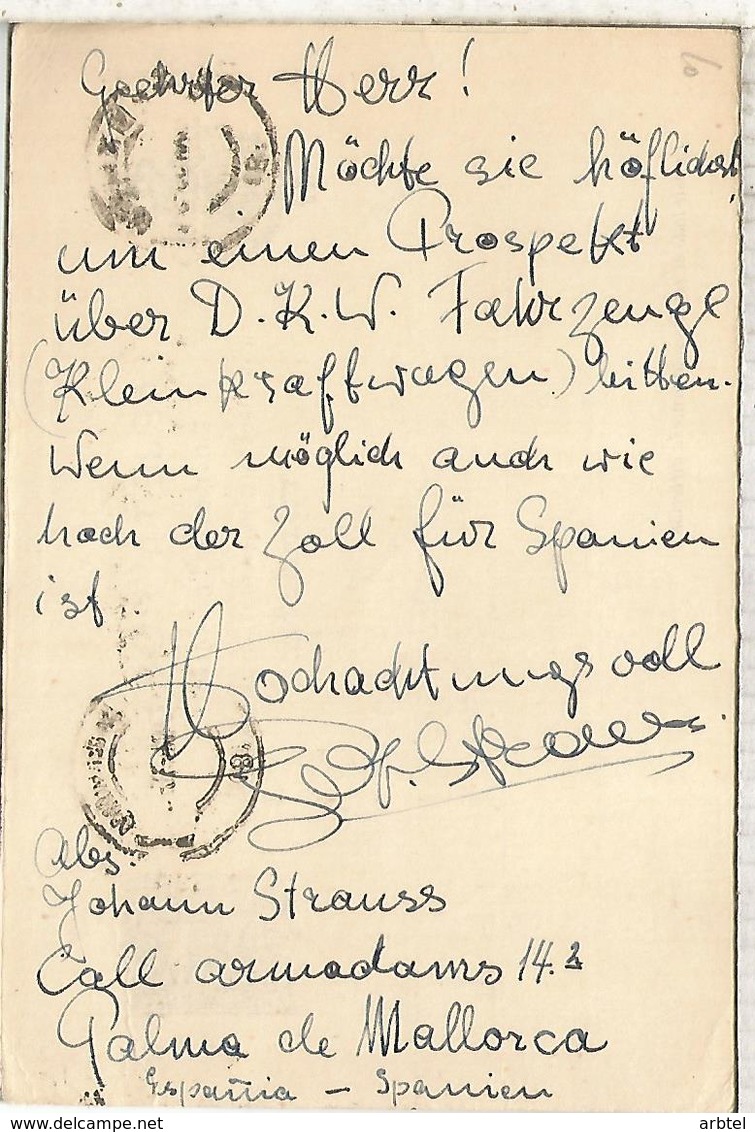 Geehrter Herr!
Möchte sie höflichst
um einen Prospekt
über D.K.W. Fahrzeuge
(Kleinkraftwagen) bitten.
Wenn möglich auch wie
hoch der Zoll für Spanien
ist
Hochachtungsvoll
J. Strauss
Abs.
Johann Strauss
Call armadams 14.2
Palma de Mallorca
Españia – Spanien
arbtel